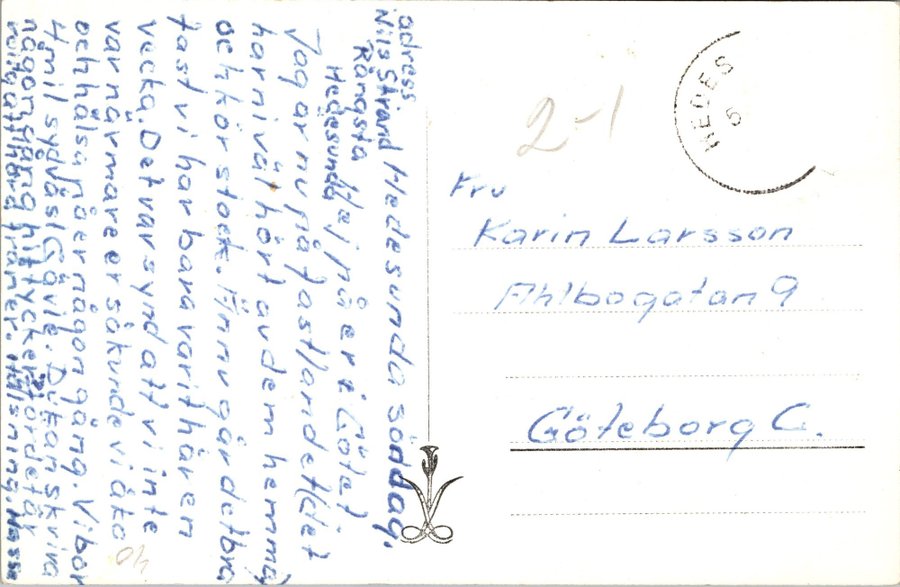 adress
Nils Strand
Rångsta
Hedesunda
Hedesunda söndag.
Hej på er i Göte)
Jag är nu på fastlandet (det
har ni väl hört av dem hemma)
och kör stock. Ännu går det bra
fast vi har bara varit här en
vecka. Det var synd att vi inte
var närmare er så kunde vi åka
och hälsa på er någon gång. Vi bor
4 mil sydväst Gävle. Du kan skriva
någon gång hit tycker för det är
roligt att höra från er. Hälsning. Nasse
HEDES
5
2-1
Fru
Karin Larsson
Ahlbogatan 9
Göteborg C.
40